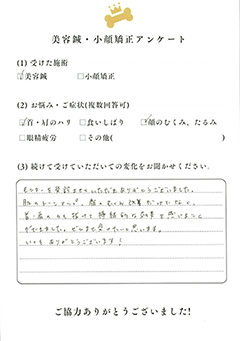 美容鍼・小顔矯正アンケート
(1) 受けた施術
☑美容鍼 □小顔矯正
(2) お悩み・ご症状(複数回答可)
☑首・肩のハリ □食いしばり ☑顔のむくみ、たるみ
□眼精疲労 □その他( )
(3) 続けて受けていただいての変化をお聞かせください.
モニターを受けさせていただきありがとうございました。
肌のトーンアップ、顔のむくみ改善だけでなく、
首・肩の力も抜けて持続的な効果を感じることが
できました。ぜひまた受けたいと思います。
いつもありがとうございます!
ご協力ありがとうございました!